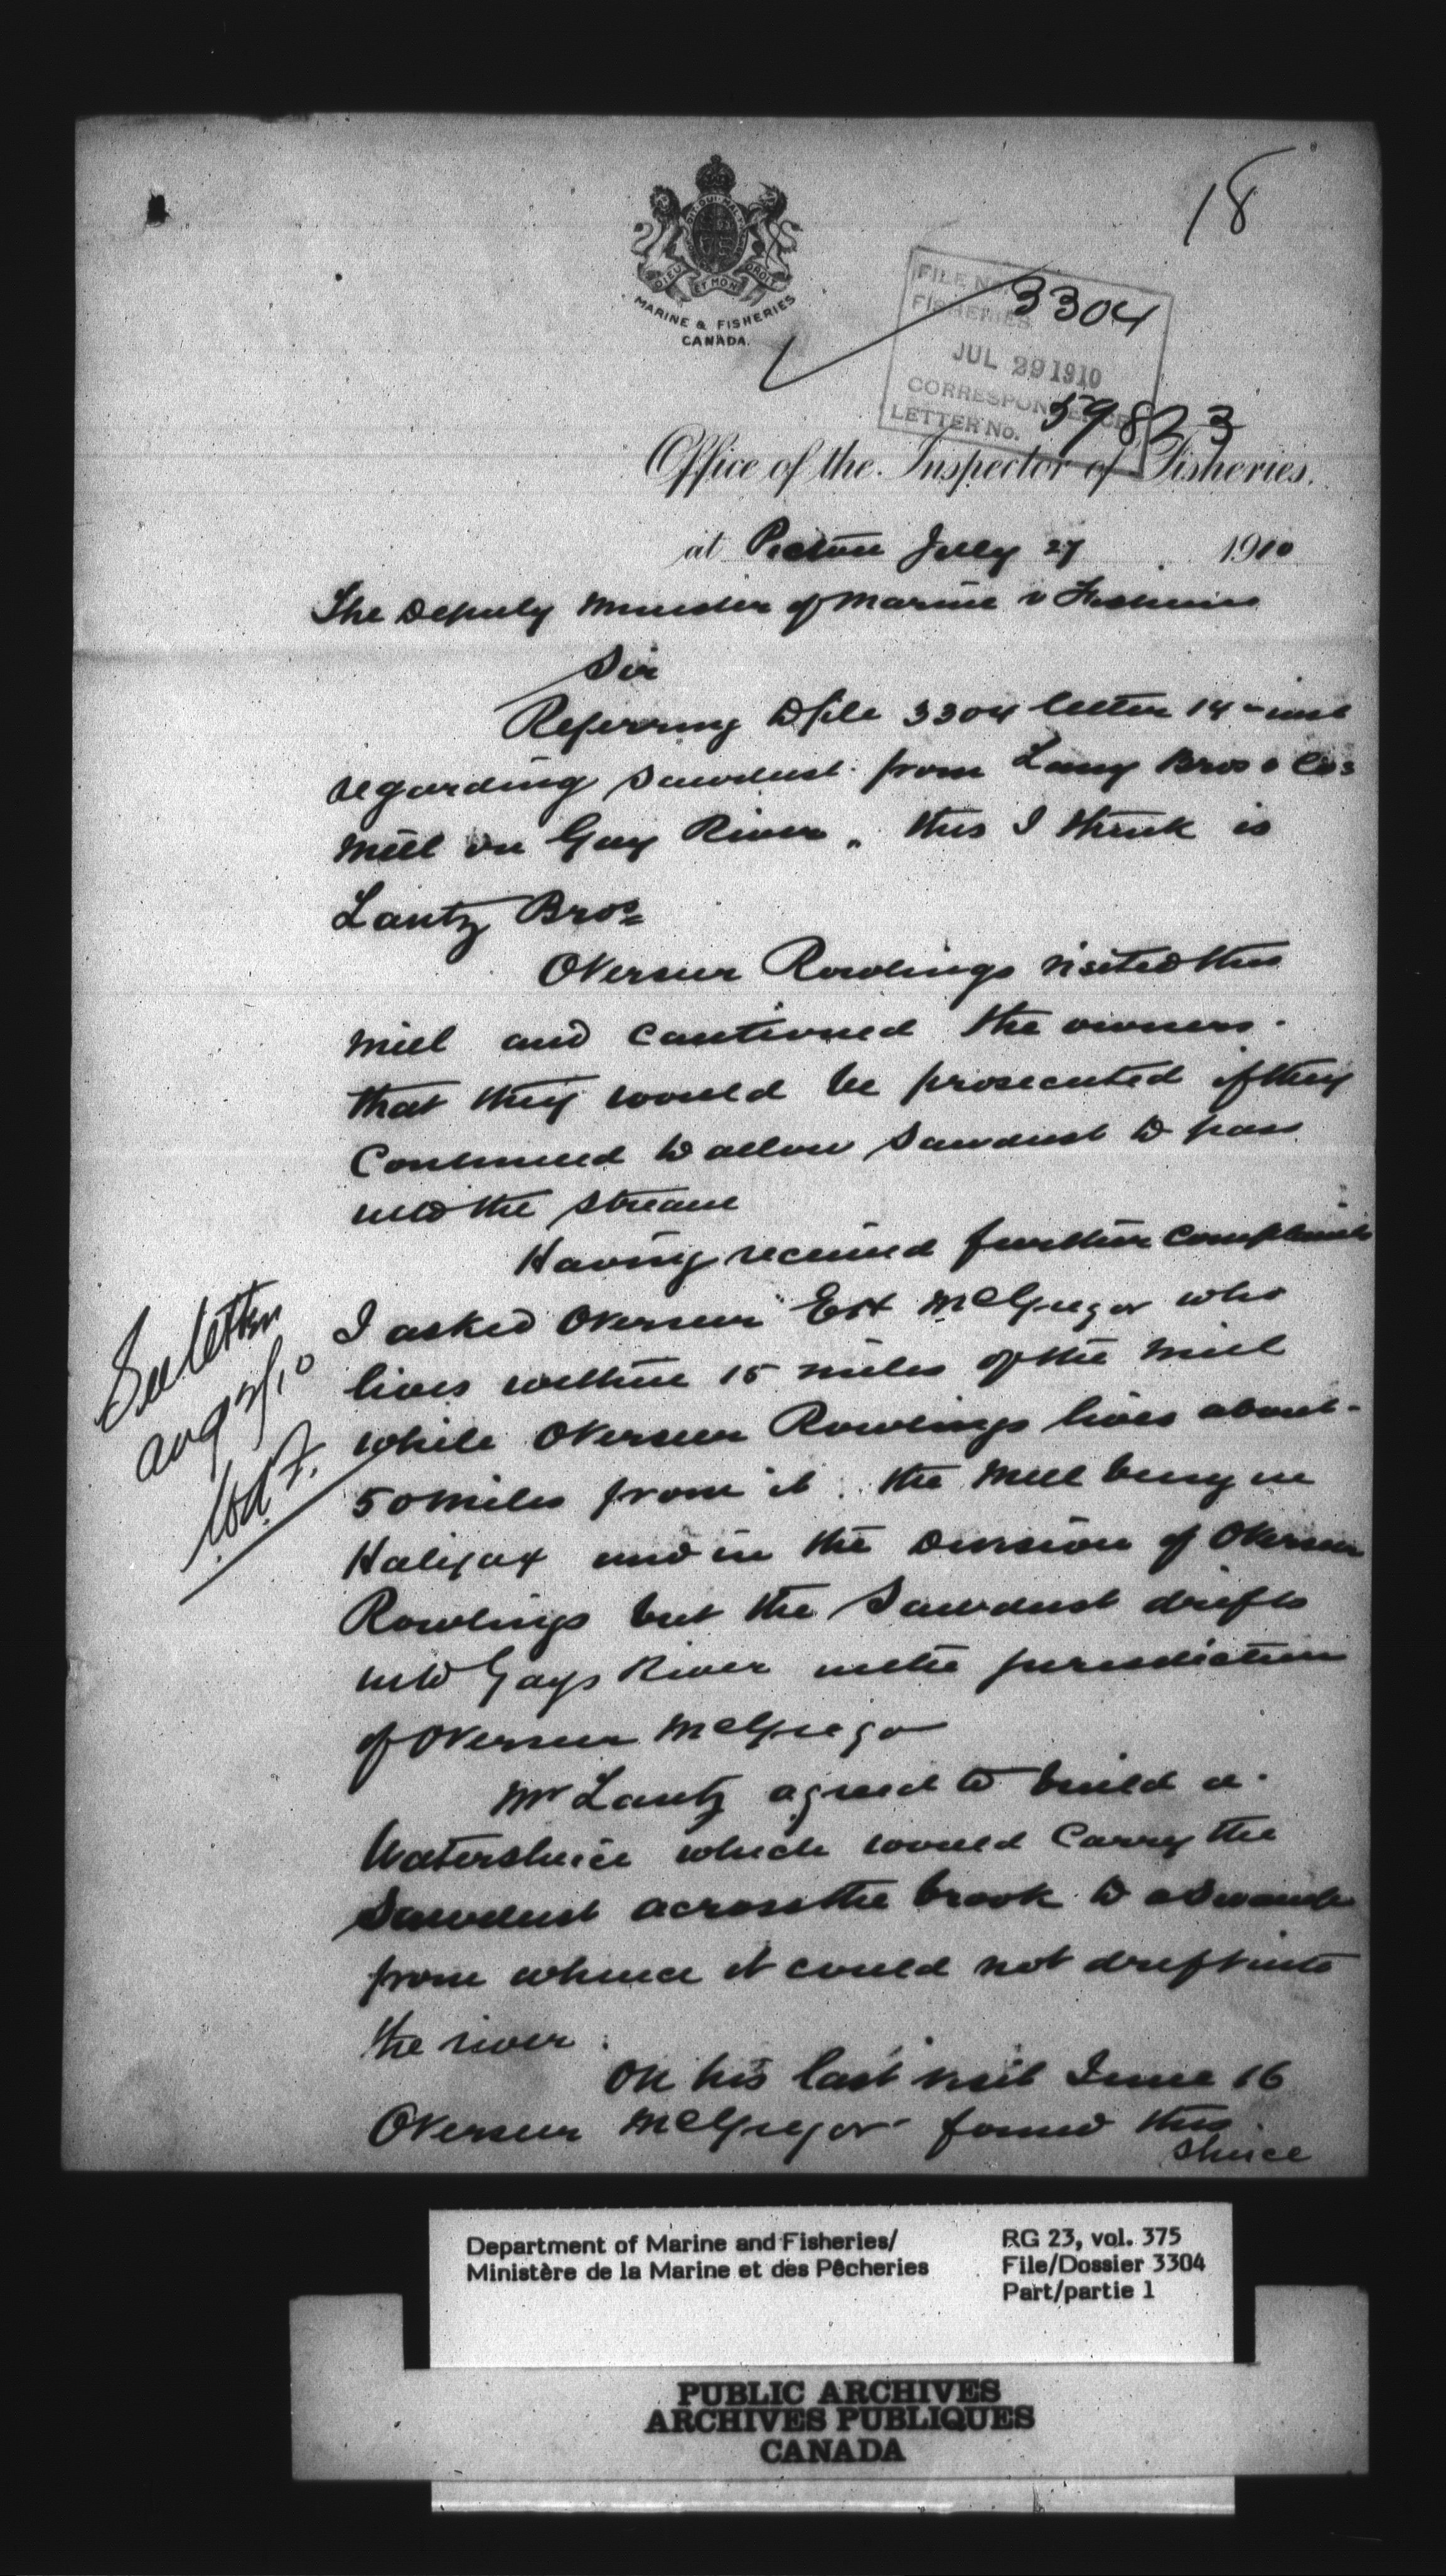 18
DIEU ET MON DROIT
MARINE & FISHERIES
CANADA.
FILE No. 3304
FISHERIES
JUL 29 1910
CORRESPONDENCE,
LETTER No. 59823
Office of the Inspector of Fisheries.
at Pictou July 27 1910
The Deputy Minister of Marine & Fisheries
Sir
Referring to file 3304 letter 14 inst
regarding sawdust from Lang Bros & Co's
mill on Gay River, this I think is
Lantz Bros
Overseer Rowlings visited this
mill and cautioned the owners
that they would be prosecuted if they
continued to allow sawdust to pass
into the stream
Having received further complaints
I asked Overseer McGregor who
lives within 15 miles of the mill
while Overseer Rowlings lives about
50 miles from it. the mill being in
Halifax and in the Division of Overseer
Rowlings but the sawdust drifts
into Gays River in the jurisdiction
of Overseer McGregor
Mr Lantz agreed to build a
Watersluice which would carry the
Sawdust across the brook to a Swamp
from whence it could not drift into
the river.
On his last visit June 16
Overseer McGregor found this
sluice
See letter
aug
Department of Marine and Fisheries/
Ministère de la Marine et des Pêcheries
RG 23, vol. 375
File/Dossier 3304
Part/partie 1
PUBLIC ARCHIVES
ARCHIVES PUBLIQUES
CANADA